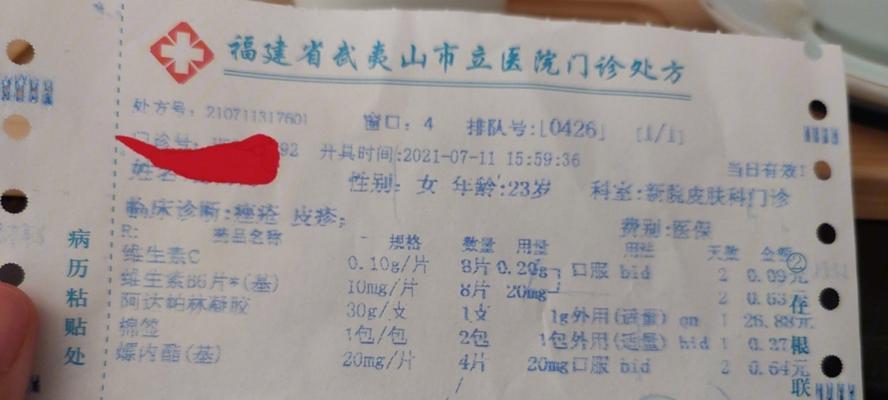 福建省武夷山市立医院门诊处方
处方号: 210711317601 窗口: 4 排队号:[0426] [1/1]
门诊号: 92 开具时间:2021-07-11 15:59:36 当日有效!
姓名 性别: 女 年龄:23岁 科室:新院皮肤科门诊
临床诊断:痤疮 皮疹; 费别:医保
R: 药品名称 规格 数量 用量 用法 天数 金额
维生素C 0.10g/片 8片 0.20g 口服 bid 2 0.09元
维生素B6片*(基) 10mg/片 8片 20mg 2 0.63元
阿达帕林凝胶 30g/支 1支 1g外用(适量) qn 1 26.88元
棉签 1包/包 2包 1包外用(适量) bid 1 0.27
螺内酯(基) 20mg/片 4片 20mg口服 bid 2 0.64元
病历粘贴处
②在根联